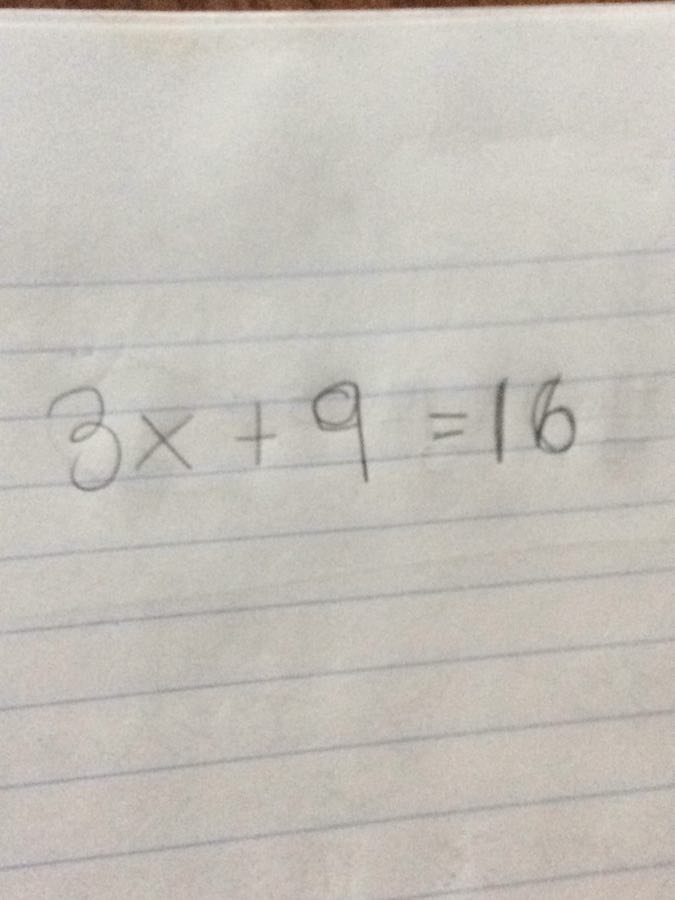 3x + 9 = 16